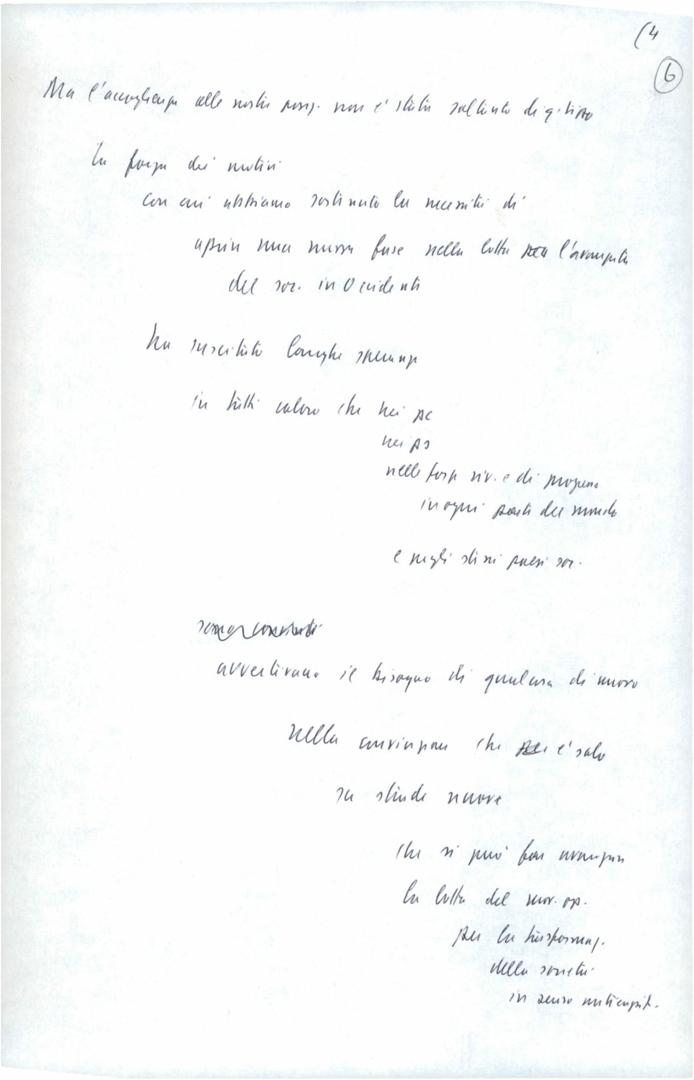 (4
6
Ma l'accoglienza alle nostre pos. non è stata soltanto di
La forza dei motivi
con cui abbiamo sostenuto la necessità di
aprire una nuova fase nella lotta per l'avanzata
del soc. in Occidente
ha suscitato larghe speranze
in tutti coloro che nei pc
nei ps
nelle forze riv. e di progresso
in ogni parte del mondo
e negli stessi paesi soc.
avvertivano il bisogno di qualcosa di nuovo
nella convinzione che è solo
su strade nuove
che si può far avanzare
la lotta del mov. op.
per la trasformaz.
della società
in senso anticapit.